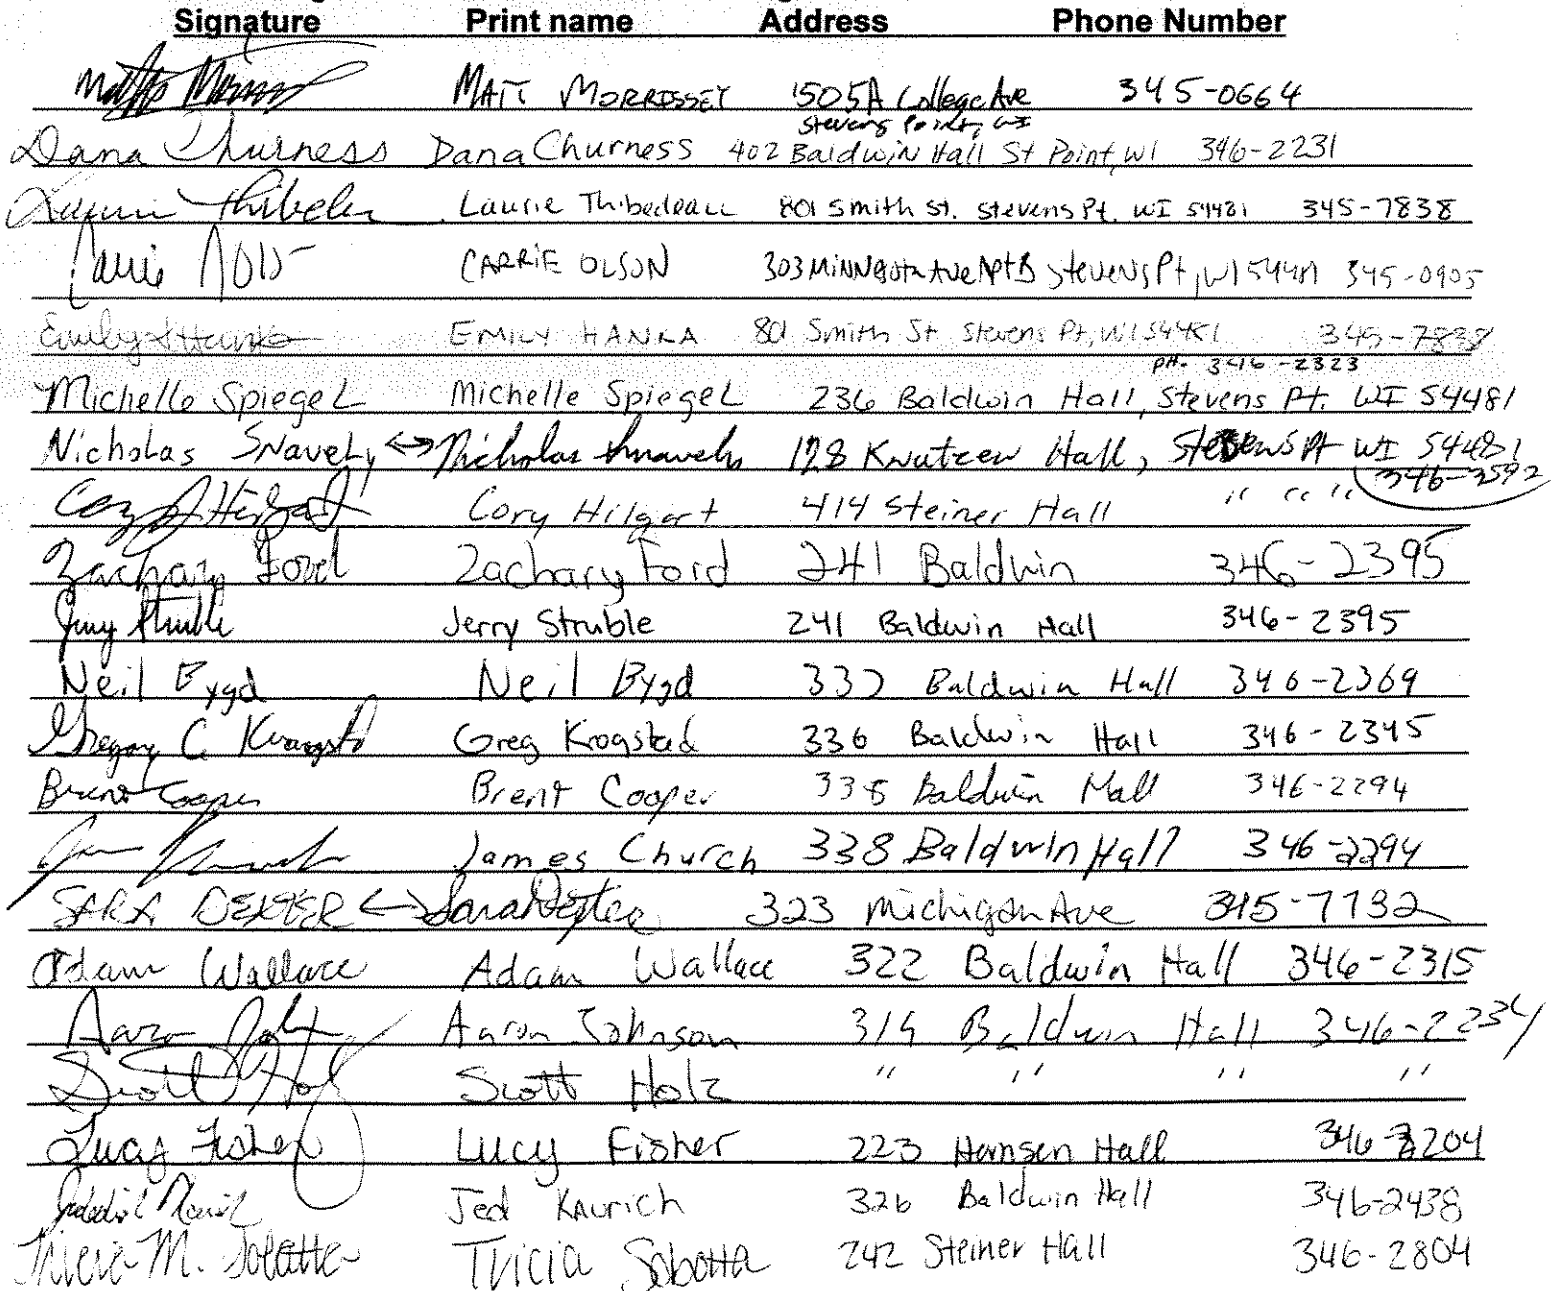 Signature Print name Address Phone Number
Matt Morrissey MATT MORRISSEY 1505A College Ave 345-0664
Stevens Point, WI
Dana Churness Dana Churness 402 Baldwin Hall St Point, WI 346-2231
Laurie Thibedeau Laurie Thibedeau 801 Smith St. Stevens Pt. WI 54481 345-7838
Carrie Olson CARRIE OLSON 303 Minnesota Ave Apt B Stevens Pt, WI 54481 345-0905
Emily Hanka EMILY HANKA 801 Smith St Stevens Pt, WI 54481 345-7838
PH. 346-2323
Michelle Spiegel Michelle Spiegel 236 Baldwin Hall, Stevens Pt. WI 54481
Nicholas Snavely ↔ Nicholas Snavely 128 Knutzen Hall, Stevens Pt WI 54481
346-3592
Cory Hilgart Cory Hilgart 414 Steiner Hall " " "
Zachary Ford Zachary Ford 241 Baldwin 346-2395
Jerry Struble Jerry Struble 241 Baldwin Hall 346-2395
Neil Bygd Neil Bygd 337 Baldwin Hall 346-2369
Gregory C. Krogstad Greg Krogstad 336 Baldwin Hall 346-2345
Brent Cooper Brent Cooper 338 Baldwin Hall 346-2294
James Church 338 Baldwin Hall 346-2294
SARA DEXTER ↔ Sara Dexter 323 Michigan Ave 345-7732
Adam Wallace Adam Wallace 322 Baldwin Hall 346-2315
Aaron Johnson 319 Baldwin Hall 346-2234
Scott Holz Scott Holz " " " "
Lucy Fisher Lucy Fisher 223 Hansen Hall 346-2204
Jed Kaurich 326 Baldwin Hall 346-2438
Tricia M. Sobotta Tricia Sobotta 242 Steiner Hall 346-2804